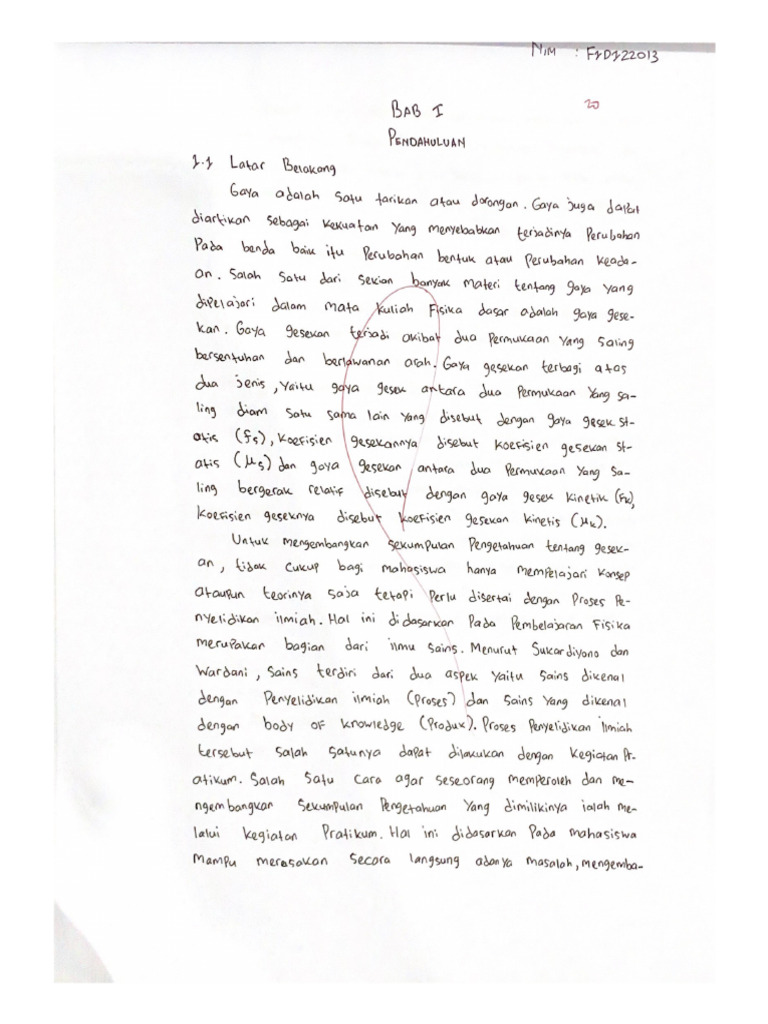 NIM : F1D122013
20
BAB I
PENDAHULUAN
1.1 Latar Belakang
Gaya adalah satu tarikan atau dorongan. Gaya juga dapat
diartikan sebagai kekuatan yang menyebabkan terjadinya Perubahan
Pada benda baik itu Perubahan bentuk atau Perubahan keada-
an. Salah satu dari sekian banyak materi tentang gaya yang
dipelajari dalam mata kuliah Fisika dasar adalah gaya gese-
kan. Gaya gesekan terjadi akibat dua Permukaan yang saling
bersentuhan dan berlawanan arah. Gaya gesekan terbagi atas
dua jenis, yaitu gaya gesek antara dua Permukaan yang sa-
ling diam satu sama lain yang disebut dengan gaya gesek st-
atis (fs), koefisien gesekannya disebut koefisien gesekan st-
atis (μs) dan gaya gesekan antara dua Permukaan yang sa-
ling bergerak relatif disebut dengan gaya gesek kinetik (Fk),
koefisien geseknya disebut koefisien gesekan kinetis (μk).
Untuk mengembangkan sekumpulan Pengetahuan tentang gesek-
an, tidak cukup bagi mahasiswa hanya mempelajari konsep
ataupun teorinya saja tetapi Perlu disertai dengan Proses Pe-
nyelidikan ilmiah. Hal ini didasarkan Pada Pembelajaran Fisika
merupakan bagian dari ilmu sains. Menurut Sukardiyono dan
Wardani, sains terdiri dari dua aspek yaitu sains dikenal
dengan Penyelidikan ilmiah (Proses) dan sains yang dikenal
dengan body of knowledge (Produk). Proses Penyelidikan ilmiah
tersebut salah satunya dapat dilakukan dengan kegiatan Pr-
atikum. Salah satu cara agar seseorang memperoleh dan me-
ngembangkan sekumpulan Pengetahuan yang dimilikinya ialah me-
lalui kegiatan Pratikum. Hal ini didasarkan Pada mahasiswa
mampu merasakan secara langsung adanya masalah, mengemba-